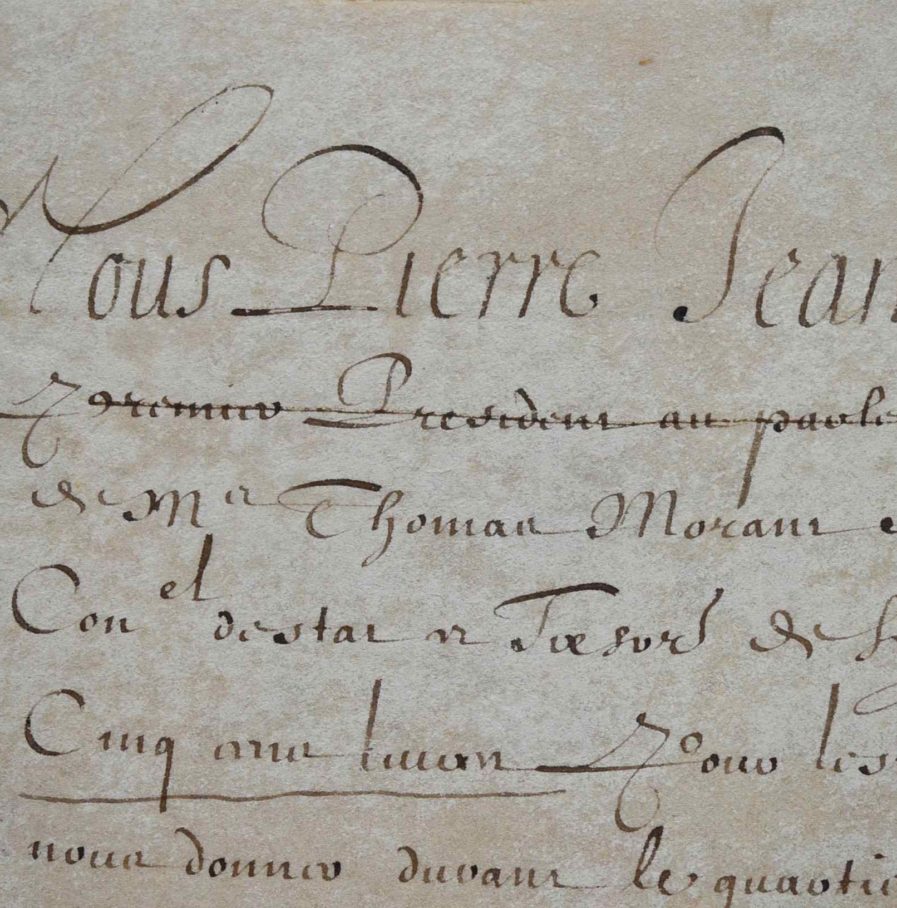 Nous Pierre Jean
premier President au parle
de Mr Thomas Morant
Conel destat et Tresorr de
Cinq cens livres pour les
nous donner durant le quartie